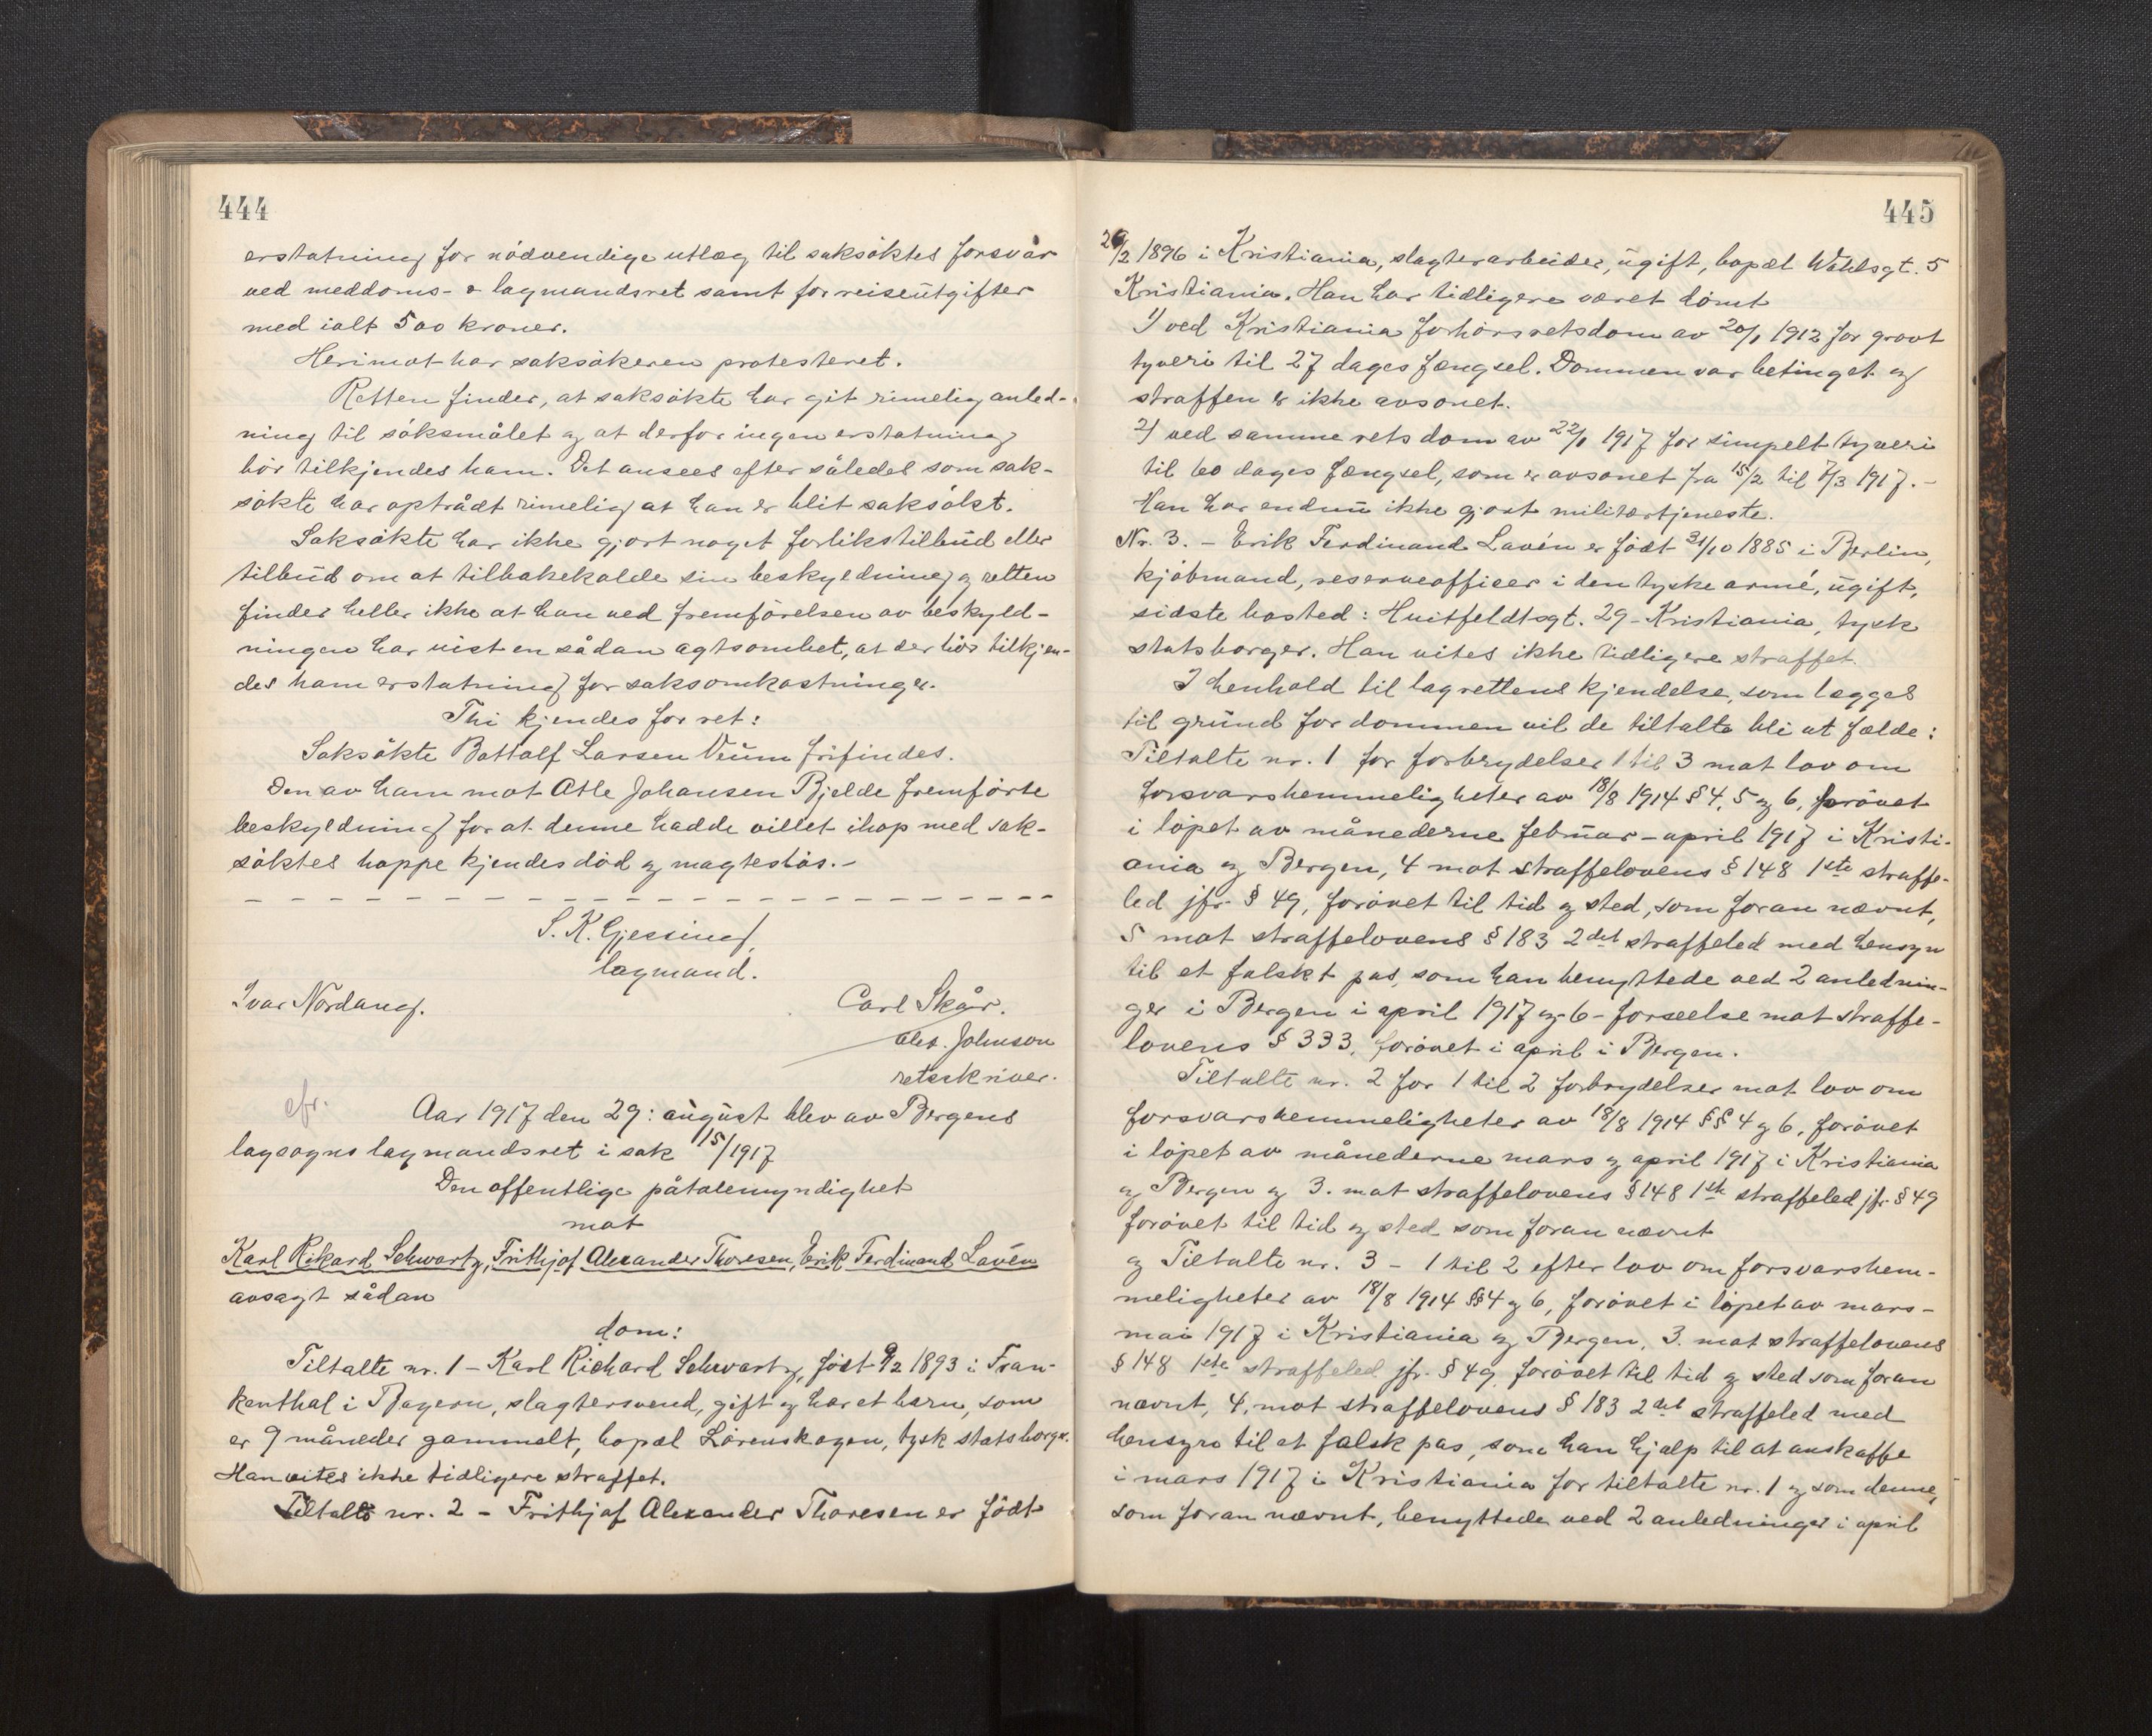 444
erstatning for nödvendige utlæg til saksöktes forsvar
ved meddoms- & lagmandsret samt for reiseutgifter
med ialt 500 kroner.
Herimot har saksökeren protesteret.
Retten finder, at saksökte har git rimelig anled-
ning til söksmålet og at derfor ingen erstatning
bör tilkjendes ham. Det ansees efter således som sak-
sökte har optrådt rimelig at han er blit saksökt.
Saksökte har ikke gjort noget forlikstilbud eller
tilbud om at tilbakekalde sin beskyldning og retten
finder heller ikke at han ved fremförelsen av beskyld-
ningen har vist en sådan agtsomhet, at der bör tilkjen-
des ham erstatning for saksomkostninger.
Thi kjendes for ret:
Saksökte Bottolf Larsen Veum frifindes.
Den av ham mot Atle Johansen Bjelde fremförte
beskyldning for at denne hadde villet ihop med sak-
söktes hoppe kjendes död og magteslös.-
S. K. Gjessing,
lagmand.
Ivar Nordang. Carl Skår.
Alex. Johnson
retsskriver.
cfr. Aar 1917 den 29: august blev av Bergens
lagsogns lagmandsret i sak 15/1917
Den offentlige påtalemyndighet
mot
Karl Rikard Schwartz, Frithjof Alexander Thoresen, Erik Ferdinand Lavén
avsagt sådan
dom:
Tiltalte nr. 1 - Karl Richard Schwartz, födt 9/2 1893 i Fran-
kenthal i Bayern, slagtersvend, gift og har et barn, som
er 9 måneder gammelt, bopæl Lörenskogen, tysk statsborger.
Han vites ikke tidligere straffet.
Tiltalte nr. 2 - Frithjof Alexander Thoresen er födt
445
26/2 1896 i Kristiania, slagterarbeider, ugift, bopæl Wahlsgt. 5
Kristiania. Han har tidligere været dömt
1) ved Kristiania forhörsretsdom av 20/1 1912 for grovt
tyveri til 27 dages fængsel. Dommen var betinget og
straffen er ikke avsonet.
2) ved samme rets dom av 22/1 1917 for simpelt tyveri
til 60 dages fængsel, som er avsonet fra 15/2 til 7/3 1917.-
Han har endnu ikke gjort militærtjeneste.
Nr. 3. - Erik Ferdinand Lavén er födt 31/10 1885 i Berlin,
kjöbmand, reserveofficer i den tyske armé, ugift,
sidste bosted: Huitfeldtsgt. 29 - Kristiania, tysk
statsborger. Han vites ikke tidligere straffet.
I henhold til lagrettens kjendelse, som lægges
til grund for dommen vil de tiltalte bli at fælde:
Tiltalte nr. 1 for forbrydelser 1 til 3 mot lov om
forsvarshemmeligheter av 18/8 1914 § 4, 5 og 6, forövet
i löpet av månederne februar - april 1917 i Kristi-
ania og Bergen, 4 mot straffelovens § 148 1ste straffe-
led jfr. § 49, forövet til tid og sted, som foran nævnt,
5 mot straffelovens § 183 2det straffeled med hensyn
til et falskt pas, som han benyttede ved 2 anlednin-
ger i Bergen i april 1917 og 6 - forseelse mot straffe-
lovens § 333, forövet i april i Bergen.
Tiltalte nr. 2 for 1 til 2 forbrydelser mot lov om
forsvarshemmeligheter av 18/8 1914 §§ 4 og 6, forövet
i löpet av månederne mars og april 1917 i Kristiania
og Bergen og 3. mot straffelovens § 148 1ste straffeled jfr. § 49
forövet til tid og sted som foran nævnt
og Tiltalte nr. 3 - 1 til 2 efter lov om forsvarshem-
meligheter av 18/8 1914 §§ 4 og 6, forövet i löpet av mars -
mai 1917 i Kristiania og Bergen, 3. mot straffelovens
§ 148 1ste straffeled jfr. § 49 forövet til tid og sted som foran
nævnt, 4, mot straffelovens § 183 2det straffeled med
hensyn til et falsk pas, som han hjalp til at anskaffe
i mars 1917 i Kristiania for tiltalte nr. 1 og som denne,
som foran nævnt, benyttede ved 2 anledninger i april